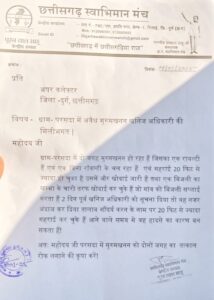 छत्तीसगढ़ स्वाभिमान मंच
"छत्तीसगढ़ में छत्तीसगढ़िया राज"
प्रति
अपर कलेक्टर
जिला -दुर्ग, छत्तीसगढ़
विषय - ग्राम- परसदा में अवैध मुरमखनन खनिज अधिकारी की
मिलीभगत।
महोदय जी
ग्राम-परसदा में दो जगह मुरमखनन हो रहा हैं जिसका एक रायल्टी
हैं एवं एक बिना रॉयल्टी के चल रहा हैं एवं गहराई 20 फिट से
ज्यादा हो चुका हैं उसमें और खोदाई जारी हैं तथा एक बिजली का
खम्भा के चारो तरफ खोदाई कर चुके हैं जो गांव की बिजली सप्लाई
करता हैं 2 दिन पूर्व खनिज अधिकारी को सूचना दिया तो वह नजर
अंदाज कर दिया तालाब सौंदर्य करन के नाम पर 20 फिट से ज्यादा
गहराई कर चुके हैं आने वाले समय में वह हादसे का कारण बन
सकता हैं।
अत: महोदय जी परसदा में मुरमखनन को दोनों जगह का तत्काल
रोक लगाने की कृपा करें।